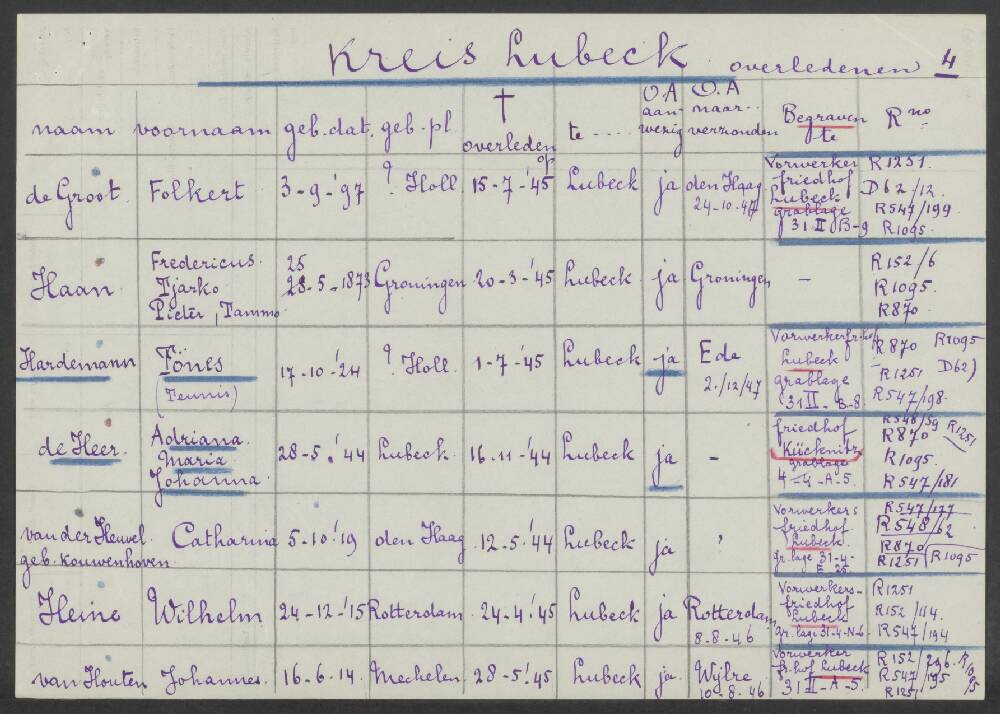 Kreis Lubeck overledenen 4
naam voornaam geb. dat. geb. pl. † overleden op te .... O.A aanwezig O.A naar verzonden Begraven te R no
de Groot Folkert 3-9-'97 ? Holl. 15-7-'45 Lubeck ja den Haag
24-10-47
Vorwerker
friedhof
Lubeck
grablage
31 II B-9
R1251.
D62/12.
R547/199
R1095.
Haan Fredericus.
Tjarko
Pieter, Tammo
25
28-5-1873 Groningen 20-3-'45 Lubeck ja Groningen –
R152/6
R1095.
R870.
Hardemann Fönes
(Teunis)
17-10-'24 ? Holl. 1-7-'45 Lubeck ja Ede
2./12/47
Lubeck
grablage
31 II - B-8.
R870 R1095
R1251 D62)
R547/198.
de Heer Adriana
Maria
Johanna
28-5-'44 Lubeck 16-11-'44 Lubeck ja –
friedhof
Kücknitz
grablage
4-4-A-5.
R548/59 R1251
R870
R1095.
R547/181
van der Heuvel
geb. Kouwenhoven
Catharina 5-10-'19 den Haag 12-5-'44 Lubeck ja
Vorwerkers
friedhof
Lubeck
gr. lage 31-4-
R547/177
R548/62
R870
R1251 R1095
Heine Wilhelm 24-12-'15 Rotterdam 24-4-'45 Lubeck ja Rotterdam
8-8-46
Vorwerkers-
friedhof
Lubeck
gr. lage 31-4-N-6
R1251
R152/114.
R547/194
van Houten Johannes. 16-6-14. Mechelen 28-5-'45 Lubeck ja Wylre
10-8-46
Vorwerker
fr. hof Lubeck
31 II - A-5.
R152/296. R1095
R547/195
R1251